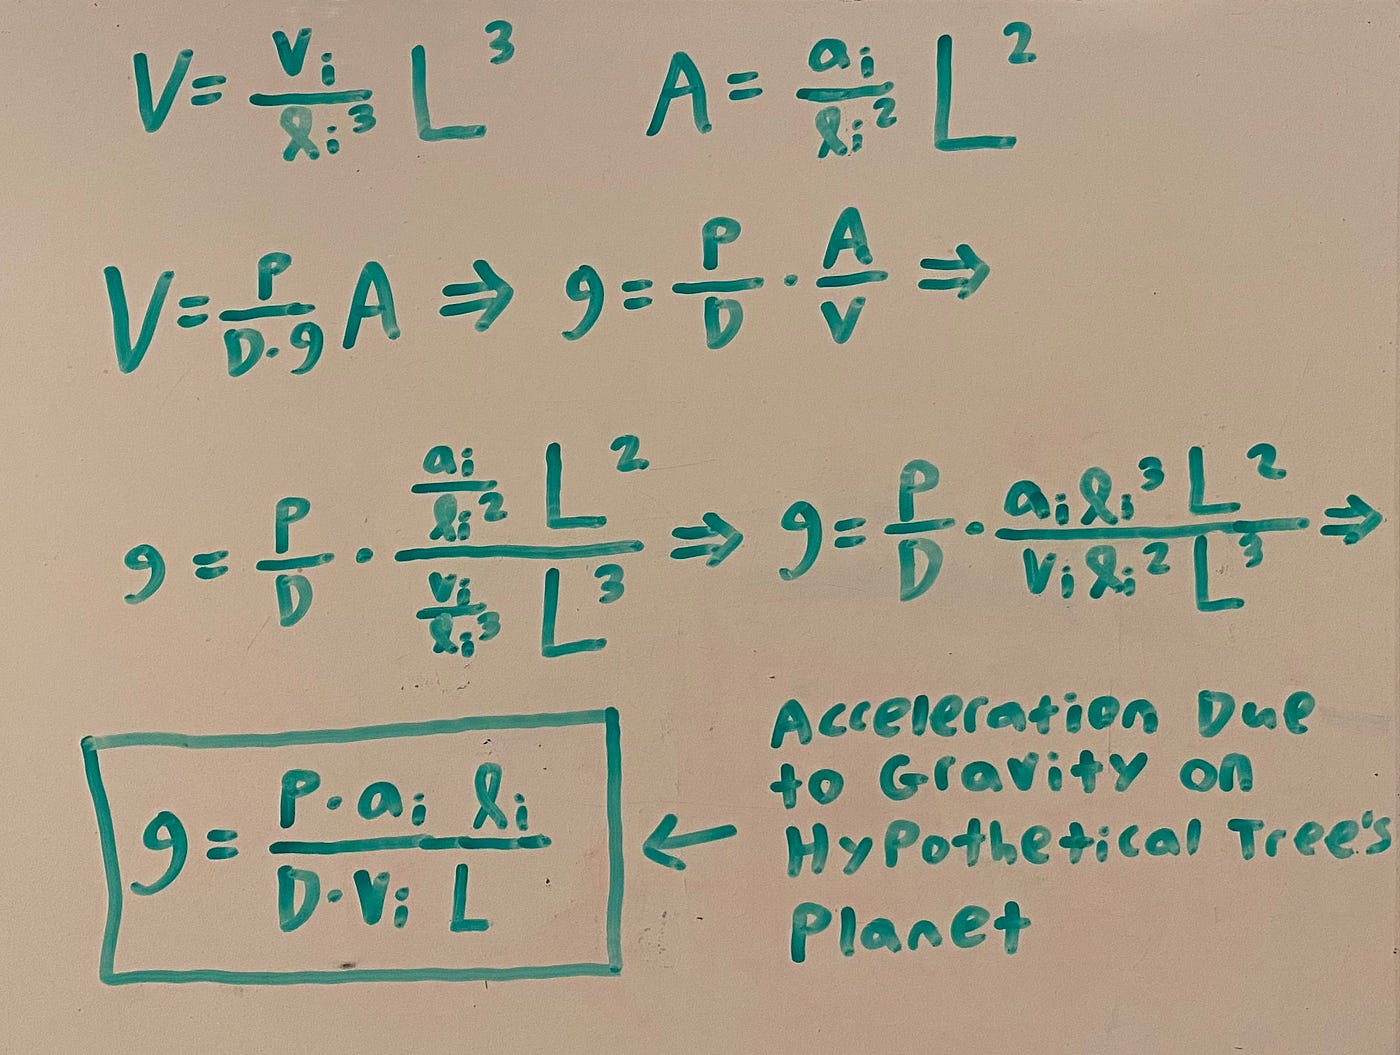 V = vᵢ/ℓᵢ³ L³   A = aᵢ/ℓᵢ² L²
V = P/(D·g) A ⇒ g = P/D · A/V ⇒
g = P/D · (aᵢ/ℓᵢ² L²)/(vᵢ/ℓᵢ³ L³) ⇒ g = P/D · (aᵢℓᵢ³L²)/(vᵢℓᵢ²L³) ⇒
g = (P·aᵢ ℓᵢ)/(D·vᵢ L) ←
Acceleration Due
to Gravity on
Hypothetical Tree's
Planet